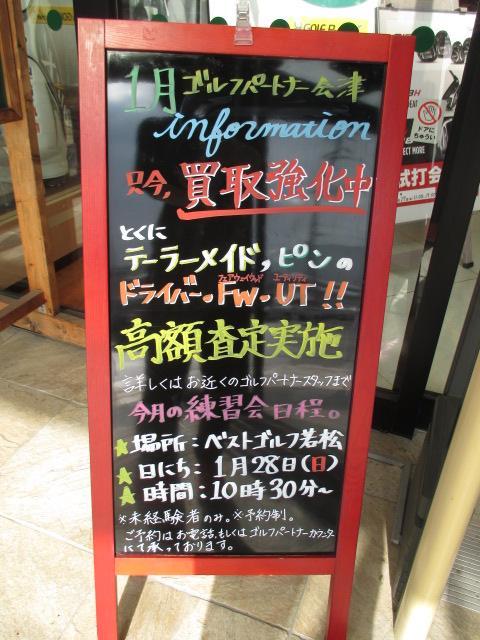 1月 ゴルフパートナー会津
information
只今, 買取強化中
とくに
テーラーメイド, ピンの
フェアウェイウッド ユーティリティ
ドライバー・FW・UT!!
高額査定実施
詳しくはお近くのゴルフパートナースタッフまで
今月の練習会日程。
★場所:ベストゴルフ若松
★日にち:1月28日(日)
★時間:10時30分～
※未経験者のみ。※予約制。
ご予約はお電話、もしくはゴルフパートナーカウンター
にて承っております。
ドアに
ちゅうい
試打会